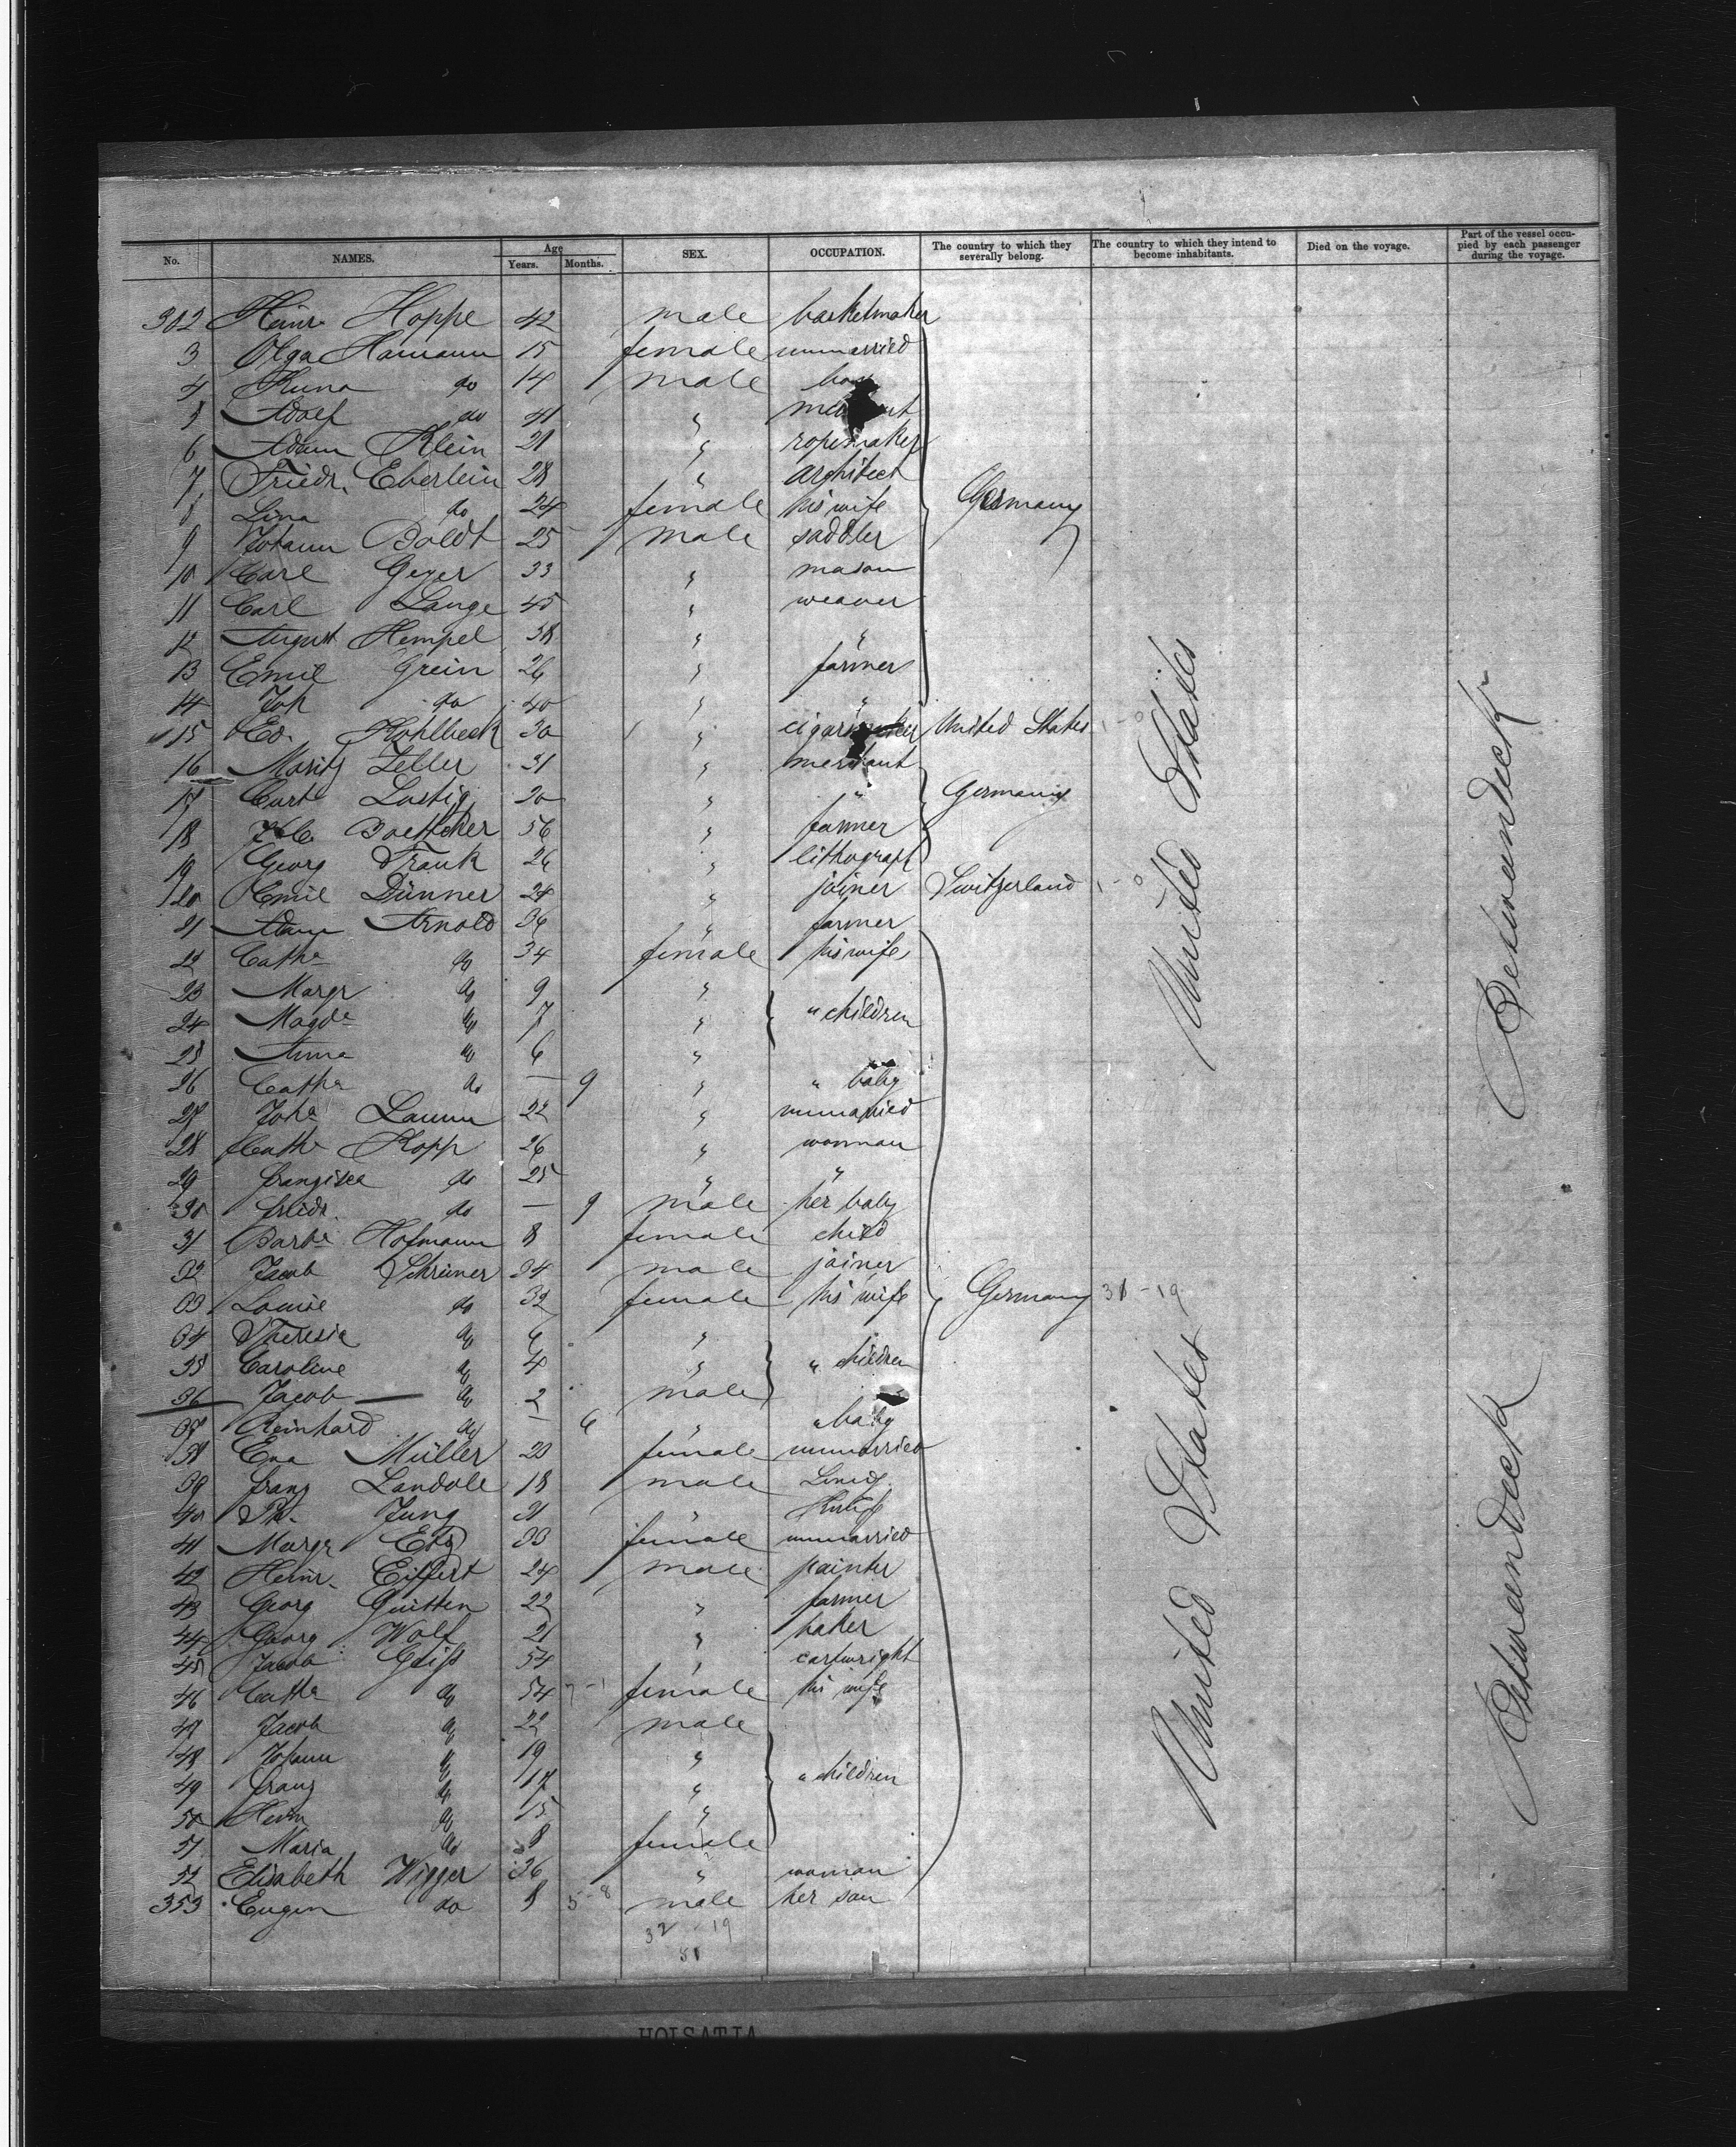 No. NAMES. Age Years. Months. SEX. OCCUPATION. The country to which they severally belong. The country to which they intend to become inhabitants. Died on the voyage. Part of the vessel occupied by each passenger during the voyage.
302 Heinr. Hoppe 42 male basketmaker
3 Olga Hamann 15 female unmarried
4 do 14 male boy
5 Adolf do 41 "
6 Adam Klein 21 " ropemaker
7 Friedr. Eberlein 28 " architect
8 Lina do 24 female his wife Germany
9 Johann Boldt 25 male saddler
10 Carl Geyer 33 " mason
11 Carl Lange 45 " weaver
12 August Hempel 38 " "
13 Emil Grein 26 " farmer
14 Joh do 40 " "
15 Ed. Kohlbeck 30 " cigarmaker United States 1-0
16 Moritz Zeller 31 " merchant
17 Curt Lustig 20 " " Germany
18 Boettcher 56 " farmer
19 Georg Frank 26 " lithograph
20 Emil Dünner 24 " joiner Switzerland 1-0
21 Adam Arnold 36 " farmer
22 Cathe do 34 female his wife
23 Margr do 9 "
24 Magde do 7 " " children
25 Anna do 6 "
26 Cathe do — 9 " " baby
27 Johe Lamm 22 " unmarried
28 Cathe Kopp 26 " woman
29 Franzisca do 25 " "
30 Friedr. do — 9 male her baby
31 Barbe Hofmann 8 female child
32 Jacob Schriner 34 male joiner
33 Louise do 32 female his wife Germany 31-19
34 Theresia do 6 "
35 Caroline do 4 " " children
36 Jacob do 2 male
37 Reinhard do — 6 " " baby
38 Eva Müller 20 female unmarried
39 Franz Landole 18 male
40 Jung 21 "
41 Margr 33 female unmarried
42 Heinr. Eiffert 24 male painter
43 Georg Guitten 22 " farmer
44 Georg Wolf 21 " baker
45 Jacob Geiß 54 " cartwright
46 Cathe do 54 7-1 female his wife
47 Jacob do 22 male
48 Johann do 19 "
49 Franz do 17 " " children
50 do 15 "
51 Maria do 8 female
52 Elisabeth Wigger 36 " woman
353 Eugen do 8 5-8 male her son
32-19
51
United States
United States
Betweendeck
Betweendeck
HOLSATIA